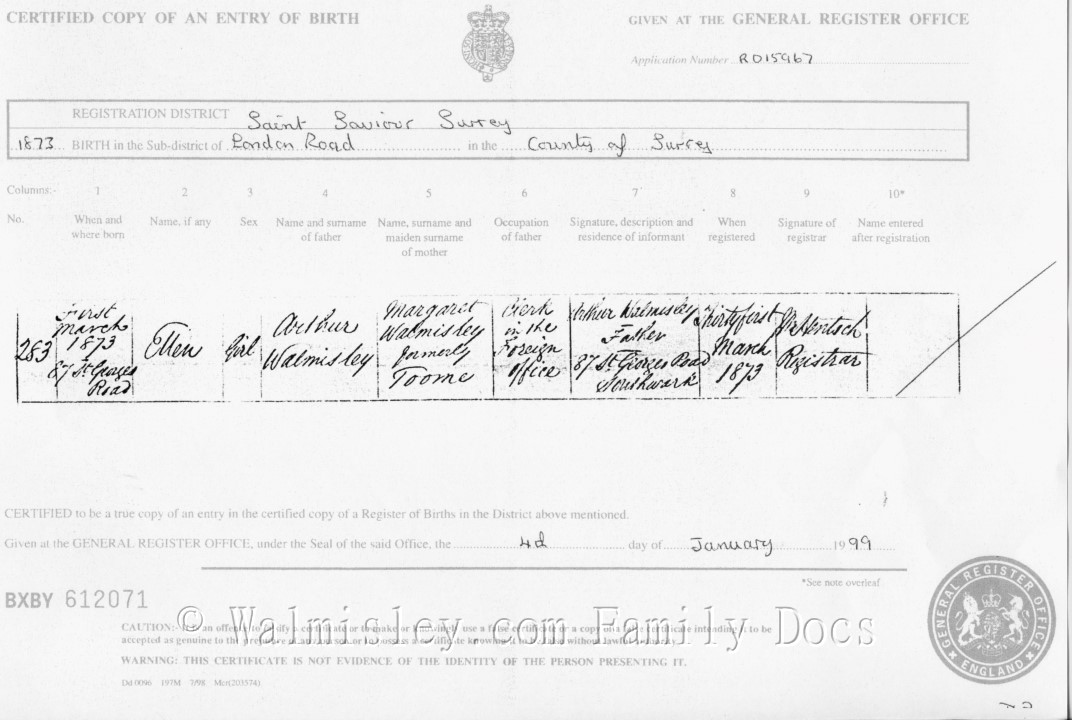 CERTIFIED COPY OF AN ENTRY OF BIRTH
GIVEN AT THE GENERAL REGISTER OFFICE
Application Number R015967
REGISTRATION DISTRICT Saint Saviour Surrey
1873 BIRTH in the Sub-district of London Road in the County of Surrey
Columns:- 1 2 3 4 5 6 7 8 9 10*
No. When and where born Name, if any Sex Name and surname of father Name, surname and maiden surname of mother Occupation of father Signature, description and residence of informant When registered Signature of registrar Name entered after registration
283
First
March
1873
87 St Georges
Road
Ellen
Girl
Arthur
Walmisley
Margaret
Walmisley
formerly
Toome
Clerk
in the
Foreign
Office
Arthur Walmisley
Father
87 St Georges Road
Southwark
Thirty first
March
1873
Registrar
CERTIFIED to be a true copy of an entry in the certified copy of a Register of Births in the District above mentioned.
Given at the GENERAL REGISTER OFFICE, under the Seal of the said Office, the 4d day of January 1999
*See note overleaf
BXBY 612071
© Walmisley.com Family Docs
CAUTION:- It is an offence to falsify a certificate or to make or knowingly use a false certificate or a copy of a false certificate intending it to be
accepted as genuine to the prejudice of any person, or to possess a certificate knowing it to be false without lawful authority.
WARNING: THIS CERTIFICATE IS NOT EVIDENCE OF THE IDENTITY OF THE PERSON PRESENTING IT.
Dd 0096 197M 7/98 Mcr(203574)
GENERAL REGISTER OFFICE
ENGLAND